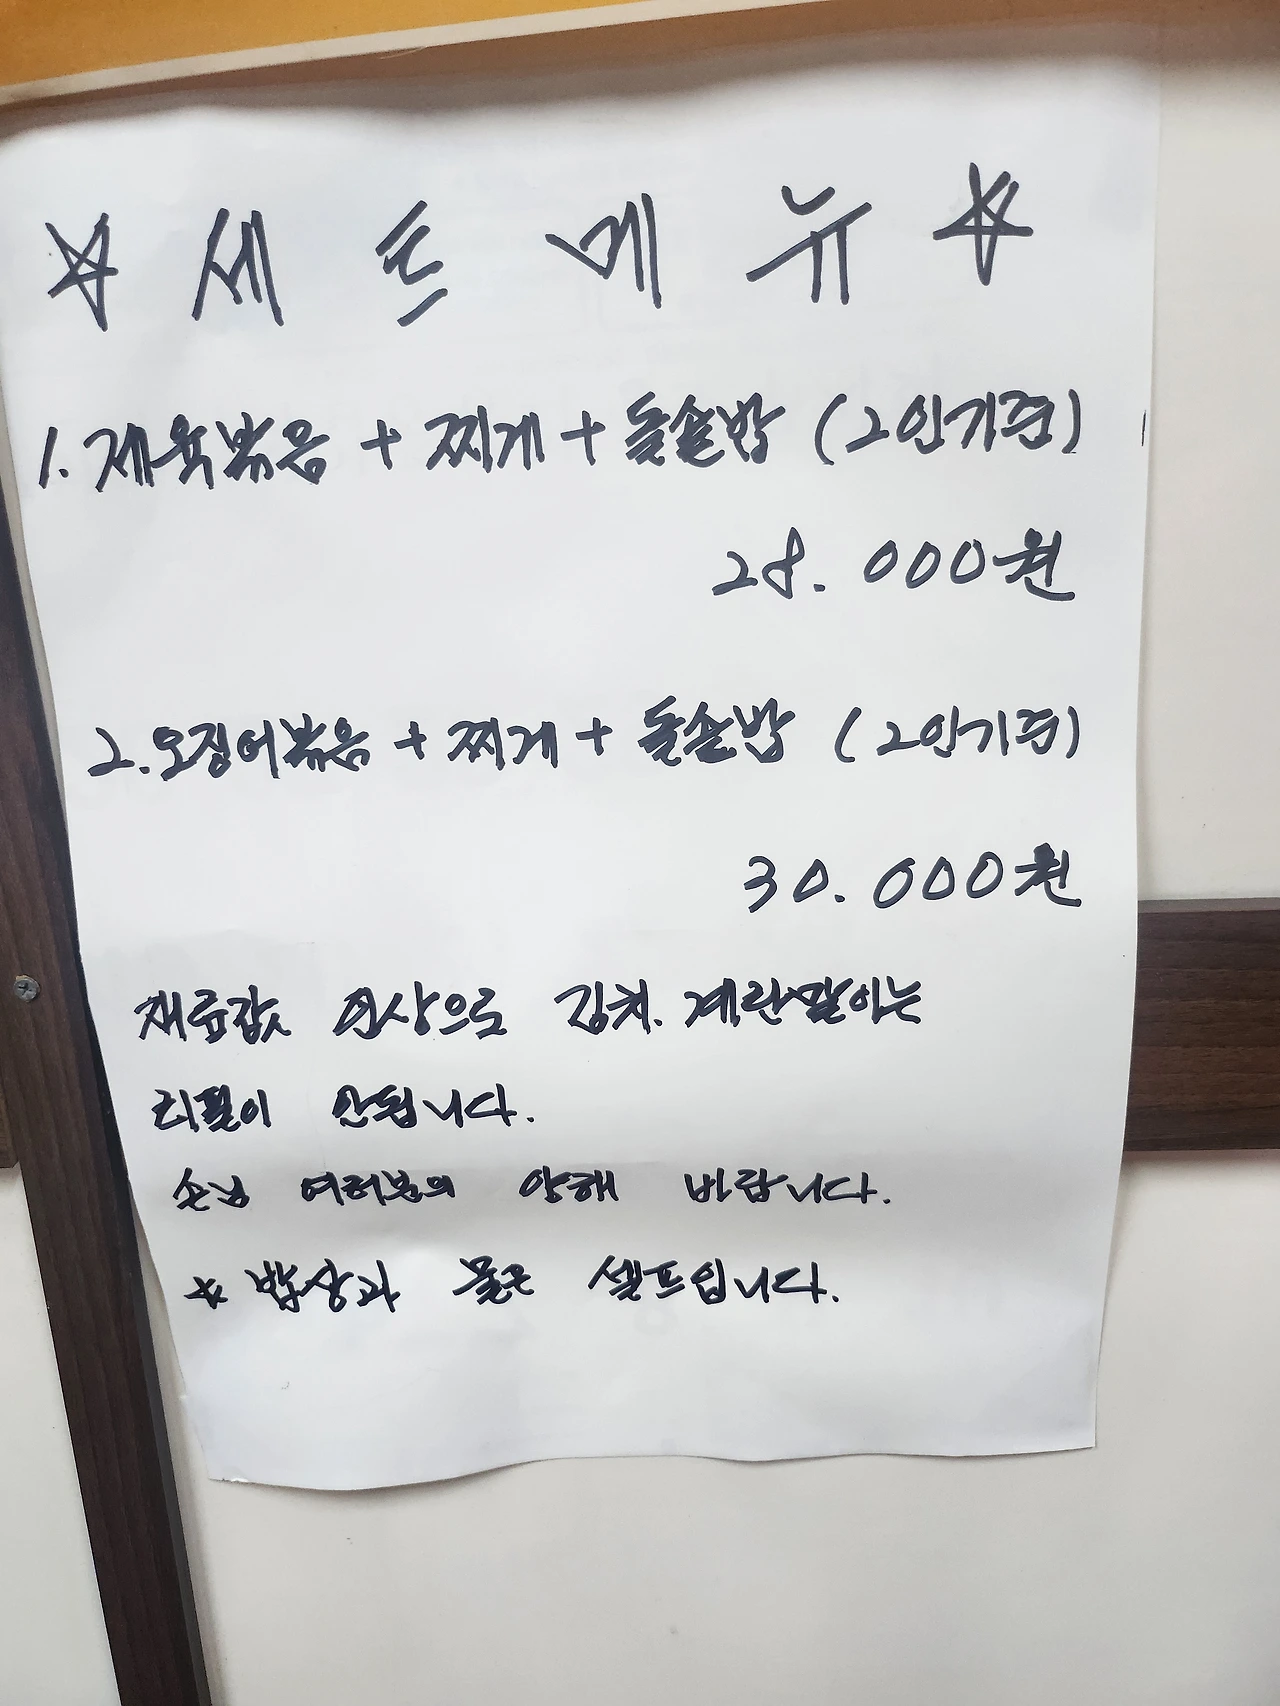 ☆ 세트메뉴 ☆
1. 제육볶음 + 찌게 + 돌솥밥 (2인기준)
28.000원
2. 오징어볶음 + 찌게 + 돌솥밥 (2인기준)
30.000원
재료값 인상으로 김치. 계란말이는
리필이 안됩니다.
손님 여러분의 양해 바랍니다.
* 밥상과 물은 셀프입니다.